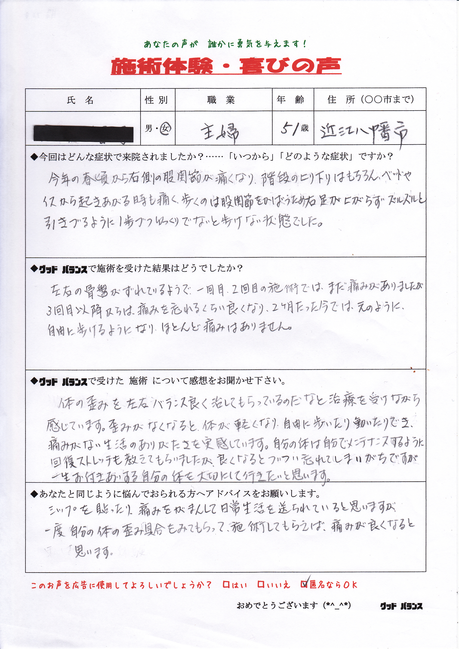 あなたの声が 誰かに勇気を与えます！
施術体験・喜びの声
氏 名 性別 職 業 年 齢 住 所 (〇〇市まで)
男・女 主婦 51歳 近江八幡市
◆今回はどんな症状で来院されましたか？……「いつから」「どのような症状」ですか？
今年の春頃から右側の股関節が痛くなり、階段の上り下りはもちろん、ベッドや
イスから起きあがる時も痛く、歩くのは股関節をかばうため右足が上がらずズルズルと
引きずるように1歩づつゆっくりでないと歩けない状態でした。
◆グッド バランスで施術を受けた結果はどうでしたか？
左右の骨盤がずれているようで一回目、2回目の施術では、まだ痛みがありましたが
3回目以降からは、痛みを忘れるくらい良くなり、2ヶ月たった今では、元のように、
自由に歩けるようになり、ほとんど痛みはありません。
◆グッド バランスで受けた 施術 について感想をお聞かせ下さい。
体の歪みを左右バランス良く治してもらっているのだなと治療を受けながら
感じています。歪みがなくなると、体が軽くなり、自由に歩いたり動いたりでき、
痛みがない生活のありがたさを実感しています。自分の体は自分でメンテナンスするように
回復ストレッチも教えてもらいましたが、良くなるとついつい忘れてしまいがちですが
一生お付きあいする自分の体を大切にして行きたいと思います。
◆あなたと同じように悩んでおられる方へアドバイスをお願いします。
シップを貼ったり、痛みをがまんして日常生活を送られていると思いますが
一度、自分の体の歪み具合をみてもらって、施術してもらえば、痛みが良くなると
思います。
このお声を広告に使用してよろしいでしょうか？ □はい □いいえ ☑匿名ならOK
おめでとうございます (*^_^*) グッド バランス